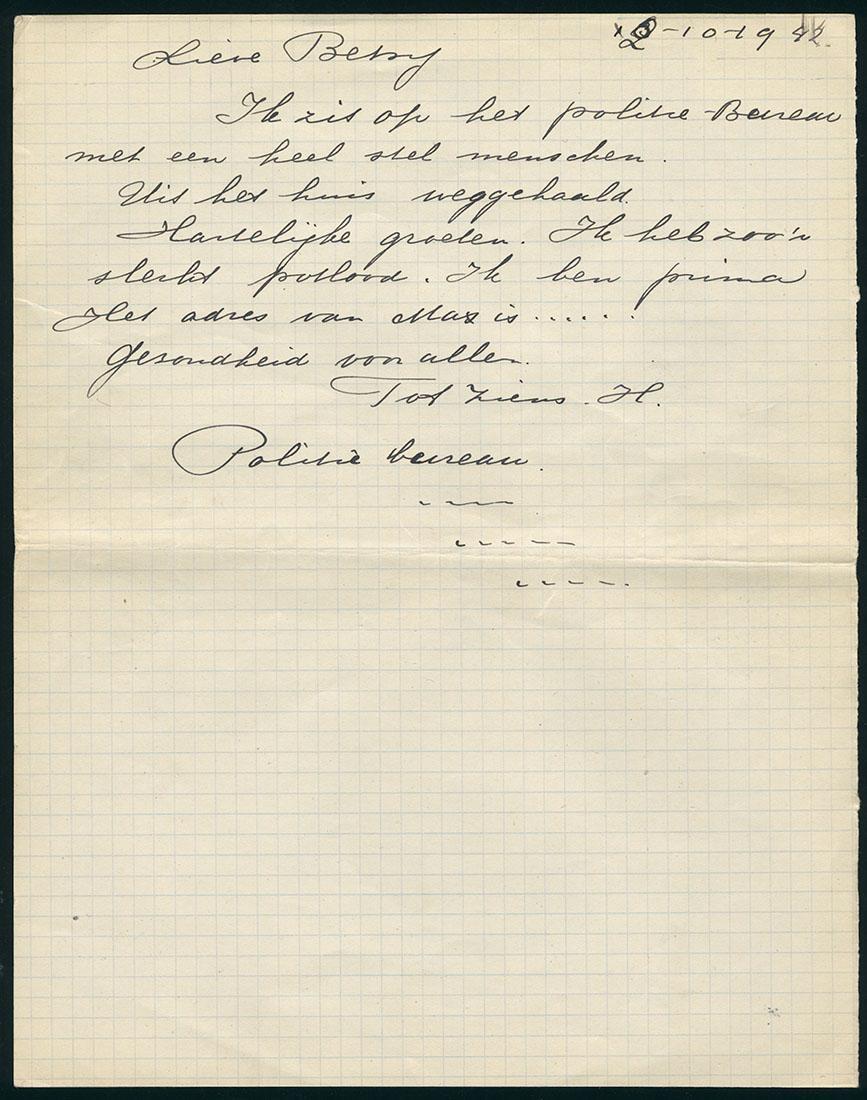 2-10-1942.
Lieve Betsy
Ik zit op het politie-Bureau
met een heel stel menschen.
Uit het huis weggehaald.
Hartelijke groeten. Ik heb zoo'n
slecht potlood. Ik ben prima
Het adres van Max is......
Gezondheid voor allen.
Tot ziens. H.
Politie bureau.